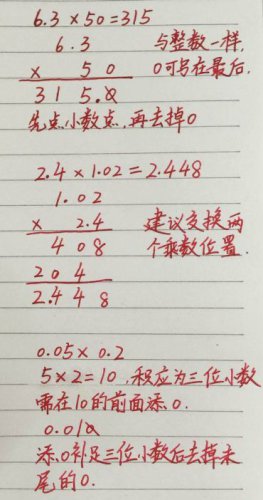 6.3×50=315
6.3 与整数一样,
× 50 0可写在最后.
315.0
先点小数点,再去掉0
2.4×1.02=2.448
1.02
× 2.4 建议交换两
408 个乘数位置.
204
2.448
0.05×0.2
5×2=10,积应为三位小数
需在10的前面添0.
0.010
添0补足三位小数后去掉末
尾的0.